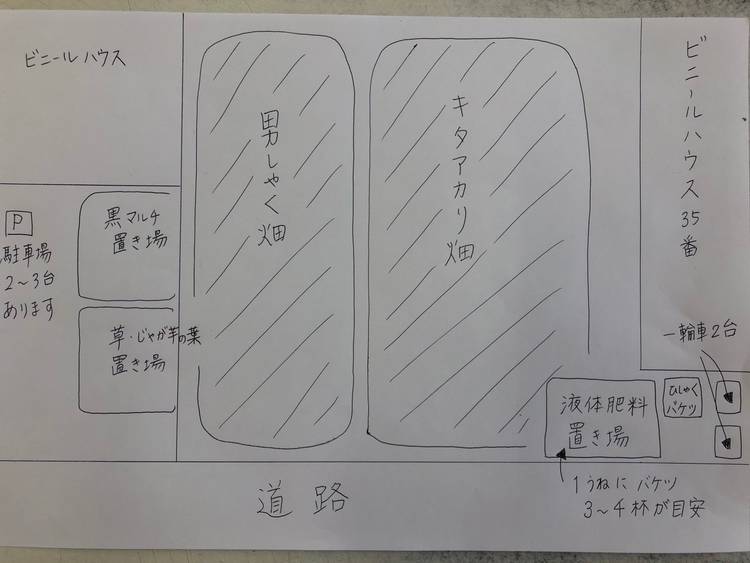 ビニールハウス
P
駐車場
2〜3台
あります
黒マルチ
置き場
草・じゃが芋の葉
置き場
男しゃく畑
キタアカリ畑
ビニールハウス35番
一輪車2台
ひしゃく
バケツ
液体肥料
置き場
1うねにバケツ
3〜4杯が目安
道路